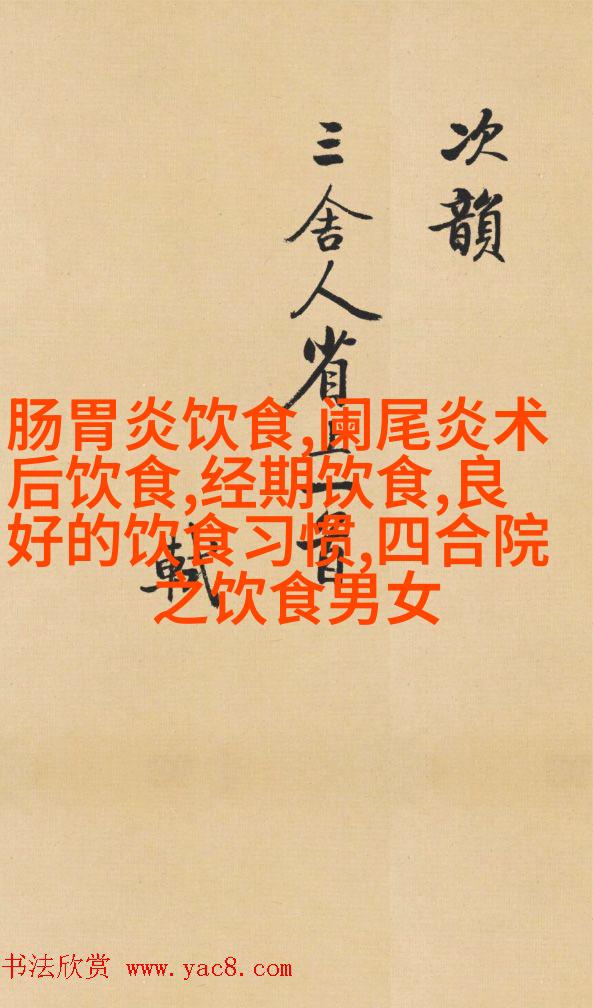 次韻
三舍人省上一首
軾
肠胃炎饮食,阑尾炎术
后饮食,经期饮食,良
好的饮食习惯,四合院
之饮食男女
书法欣赏 www.yac8.com